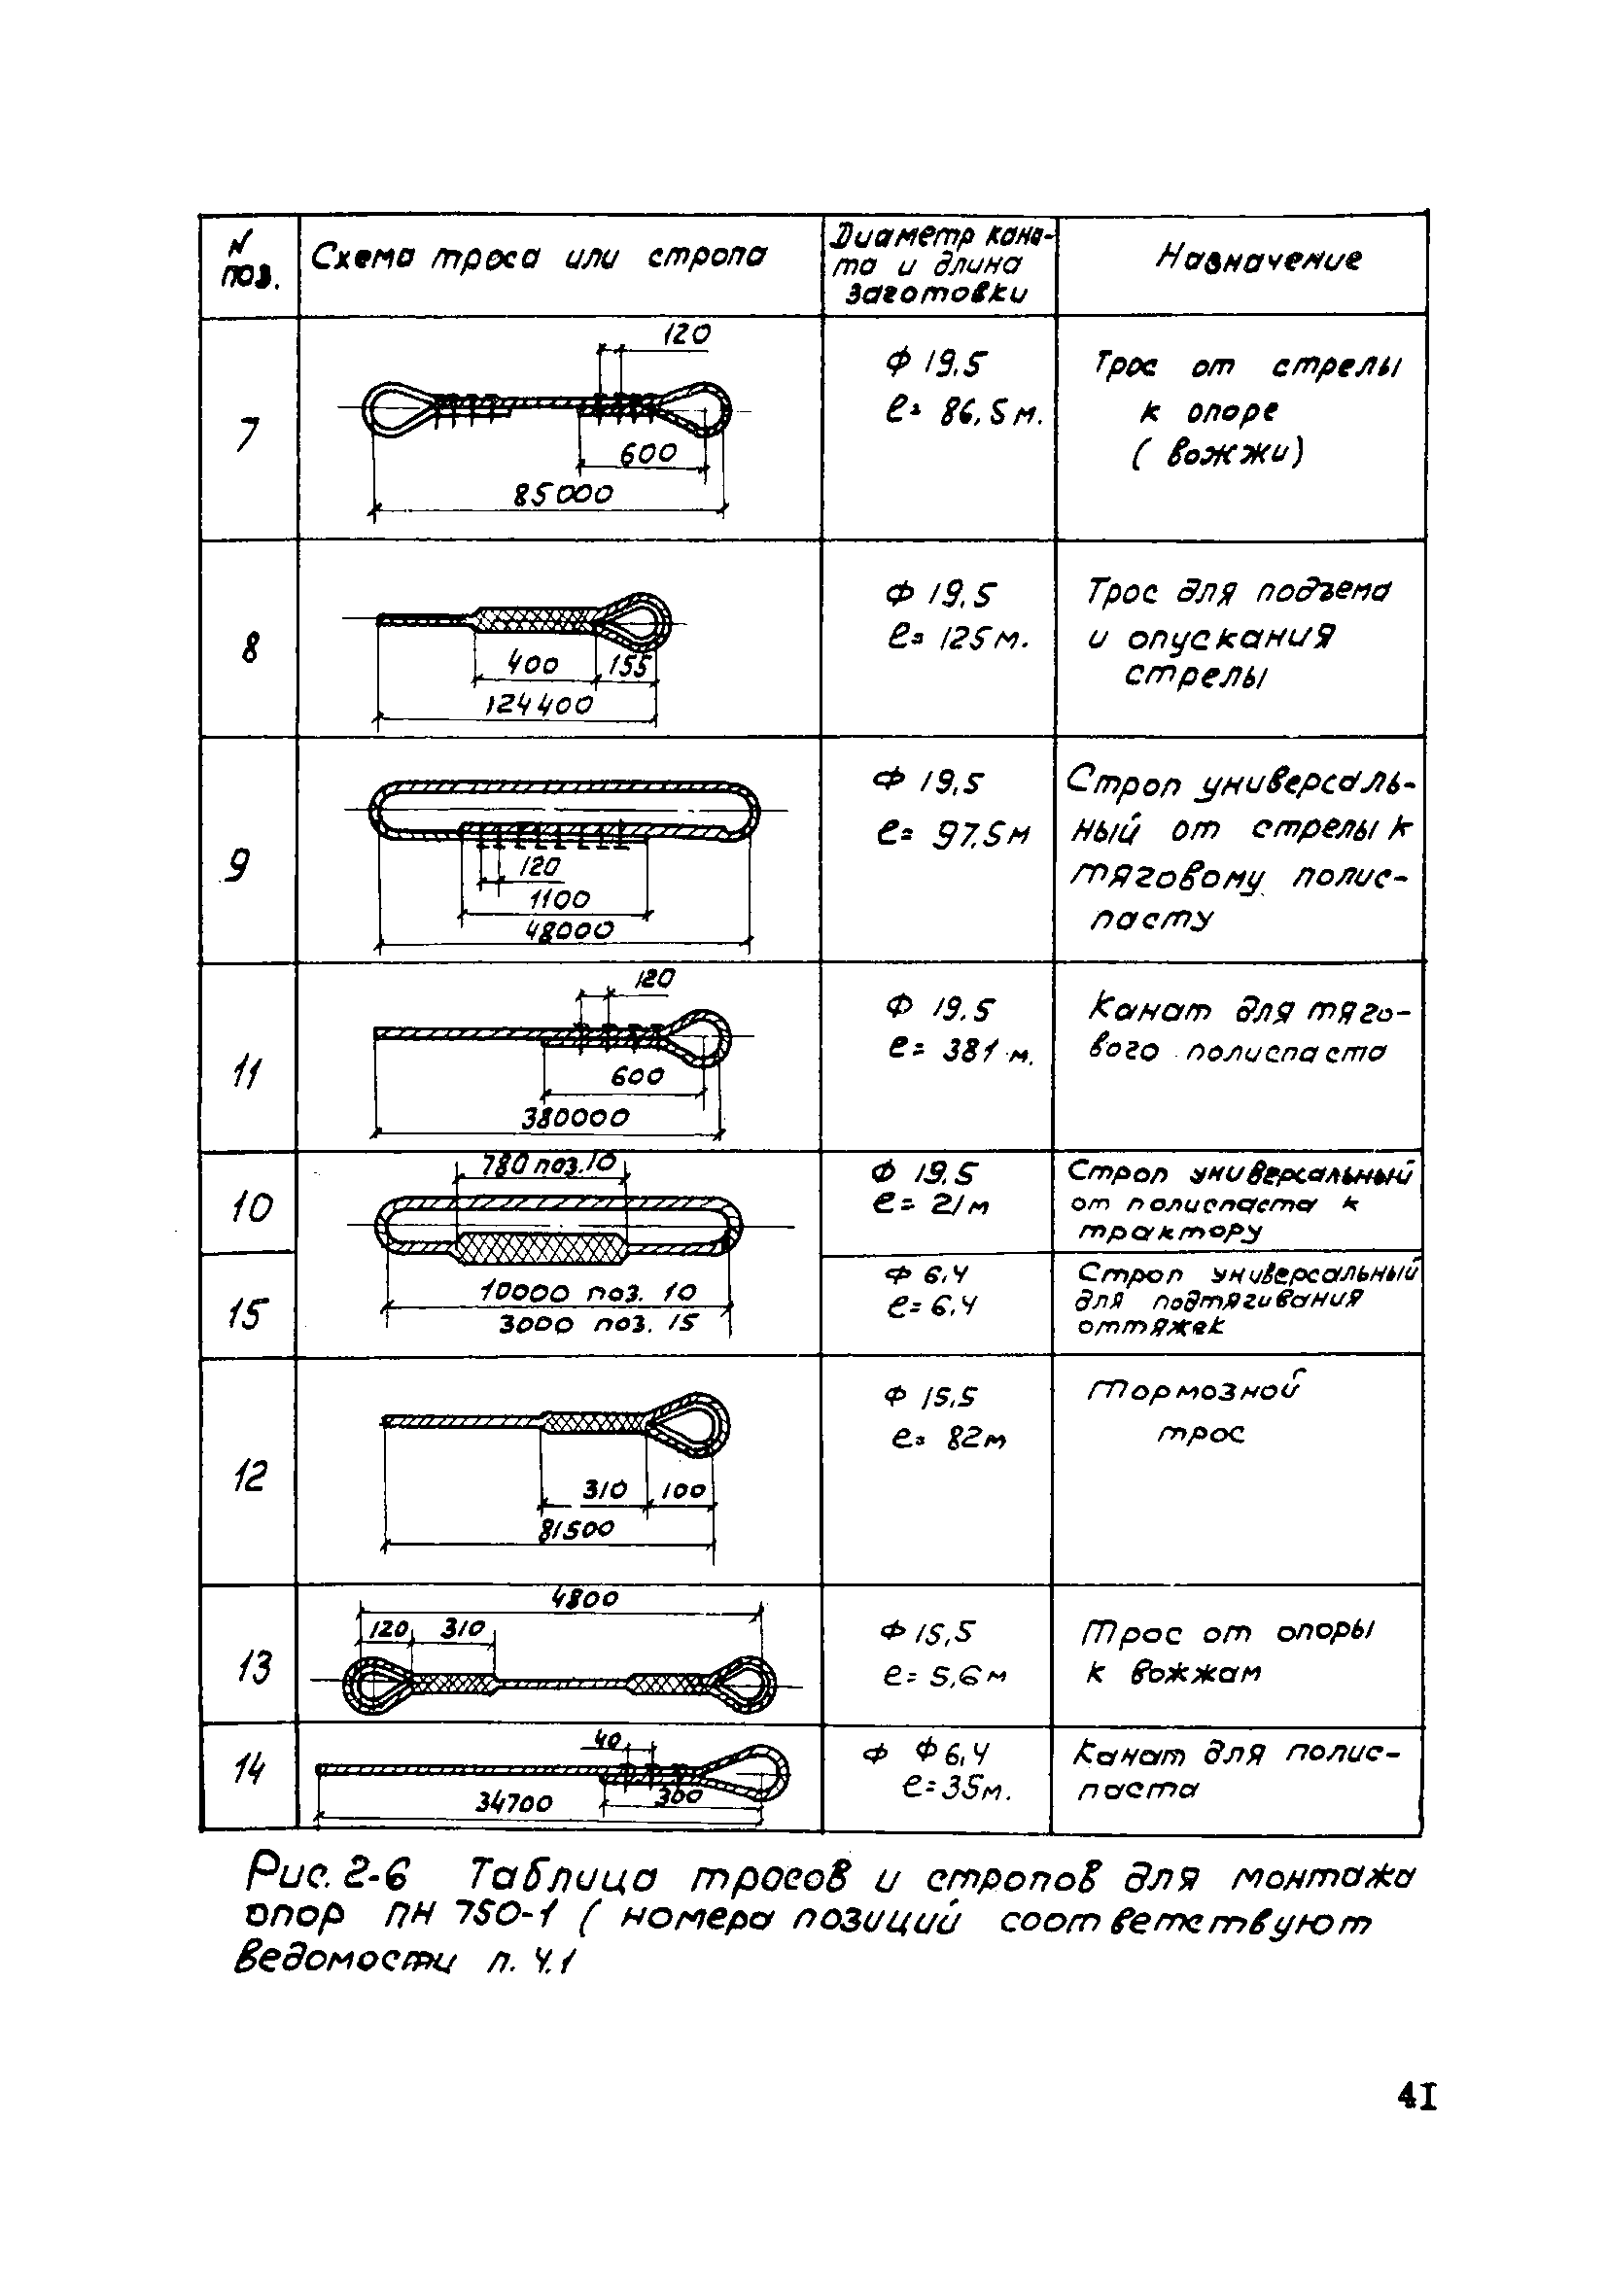 N поз.
Схема троса или стропа
Диаметр кана-
та и длина
заготовки
Назначение
7
120
600
85000
Ф 19.5
l= 86,5м.
Трос от стрелы
к опоре
( вожжи)
8
400
155
124400
Ф 19.5
l= 125м.
Трос для подъема
и опускания
стрелы
9
120
1100
48000
Ф 19,5
l= 97.5м
Строп универсаль-
ный от стрелы к
тяговому полис-
пасту
11
120
600
380000
Ф 19.5
l= 381 м.
Канат для тяго-
вого полиспаста
10
780 поз.10
Ф 19.5
l= 21м
Строп универсальный
от полиспаста к
трактору
15
10000 поз. 10
3000 поз. 15
Ф 6,4
l=6,4
Строп универсальный
для подтягивания
оттяжек
12
310
100
81500
Ф 15,5
l= 82м
Тормозной
трос
13
4800
120
310
Ф 15,5
l= 5,6м
Трос от опоры
к вожжам
14
40
300
34700
Ф Ф 6,4
l=35м.
Канат для полис-
паста
Рис. 2-6 Таблица тросов и стропов для монтажа
опор ПН 750-1 ( номера позиций соответствуют
ведомости п. 4.1
4I